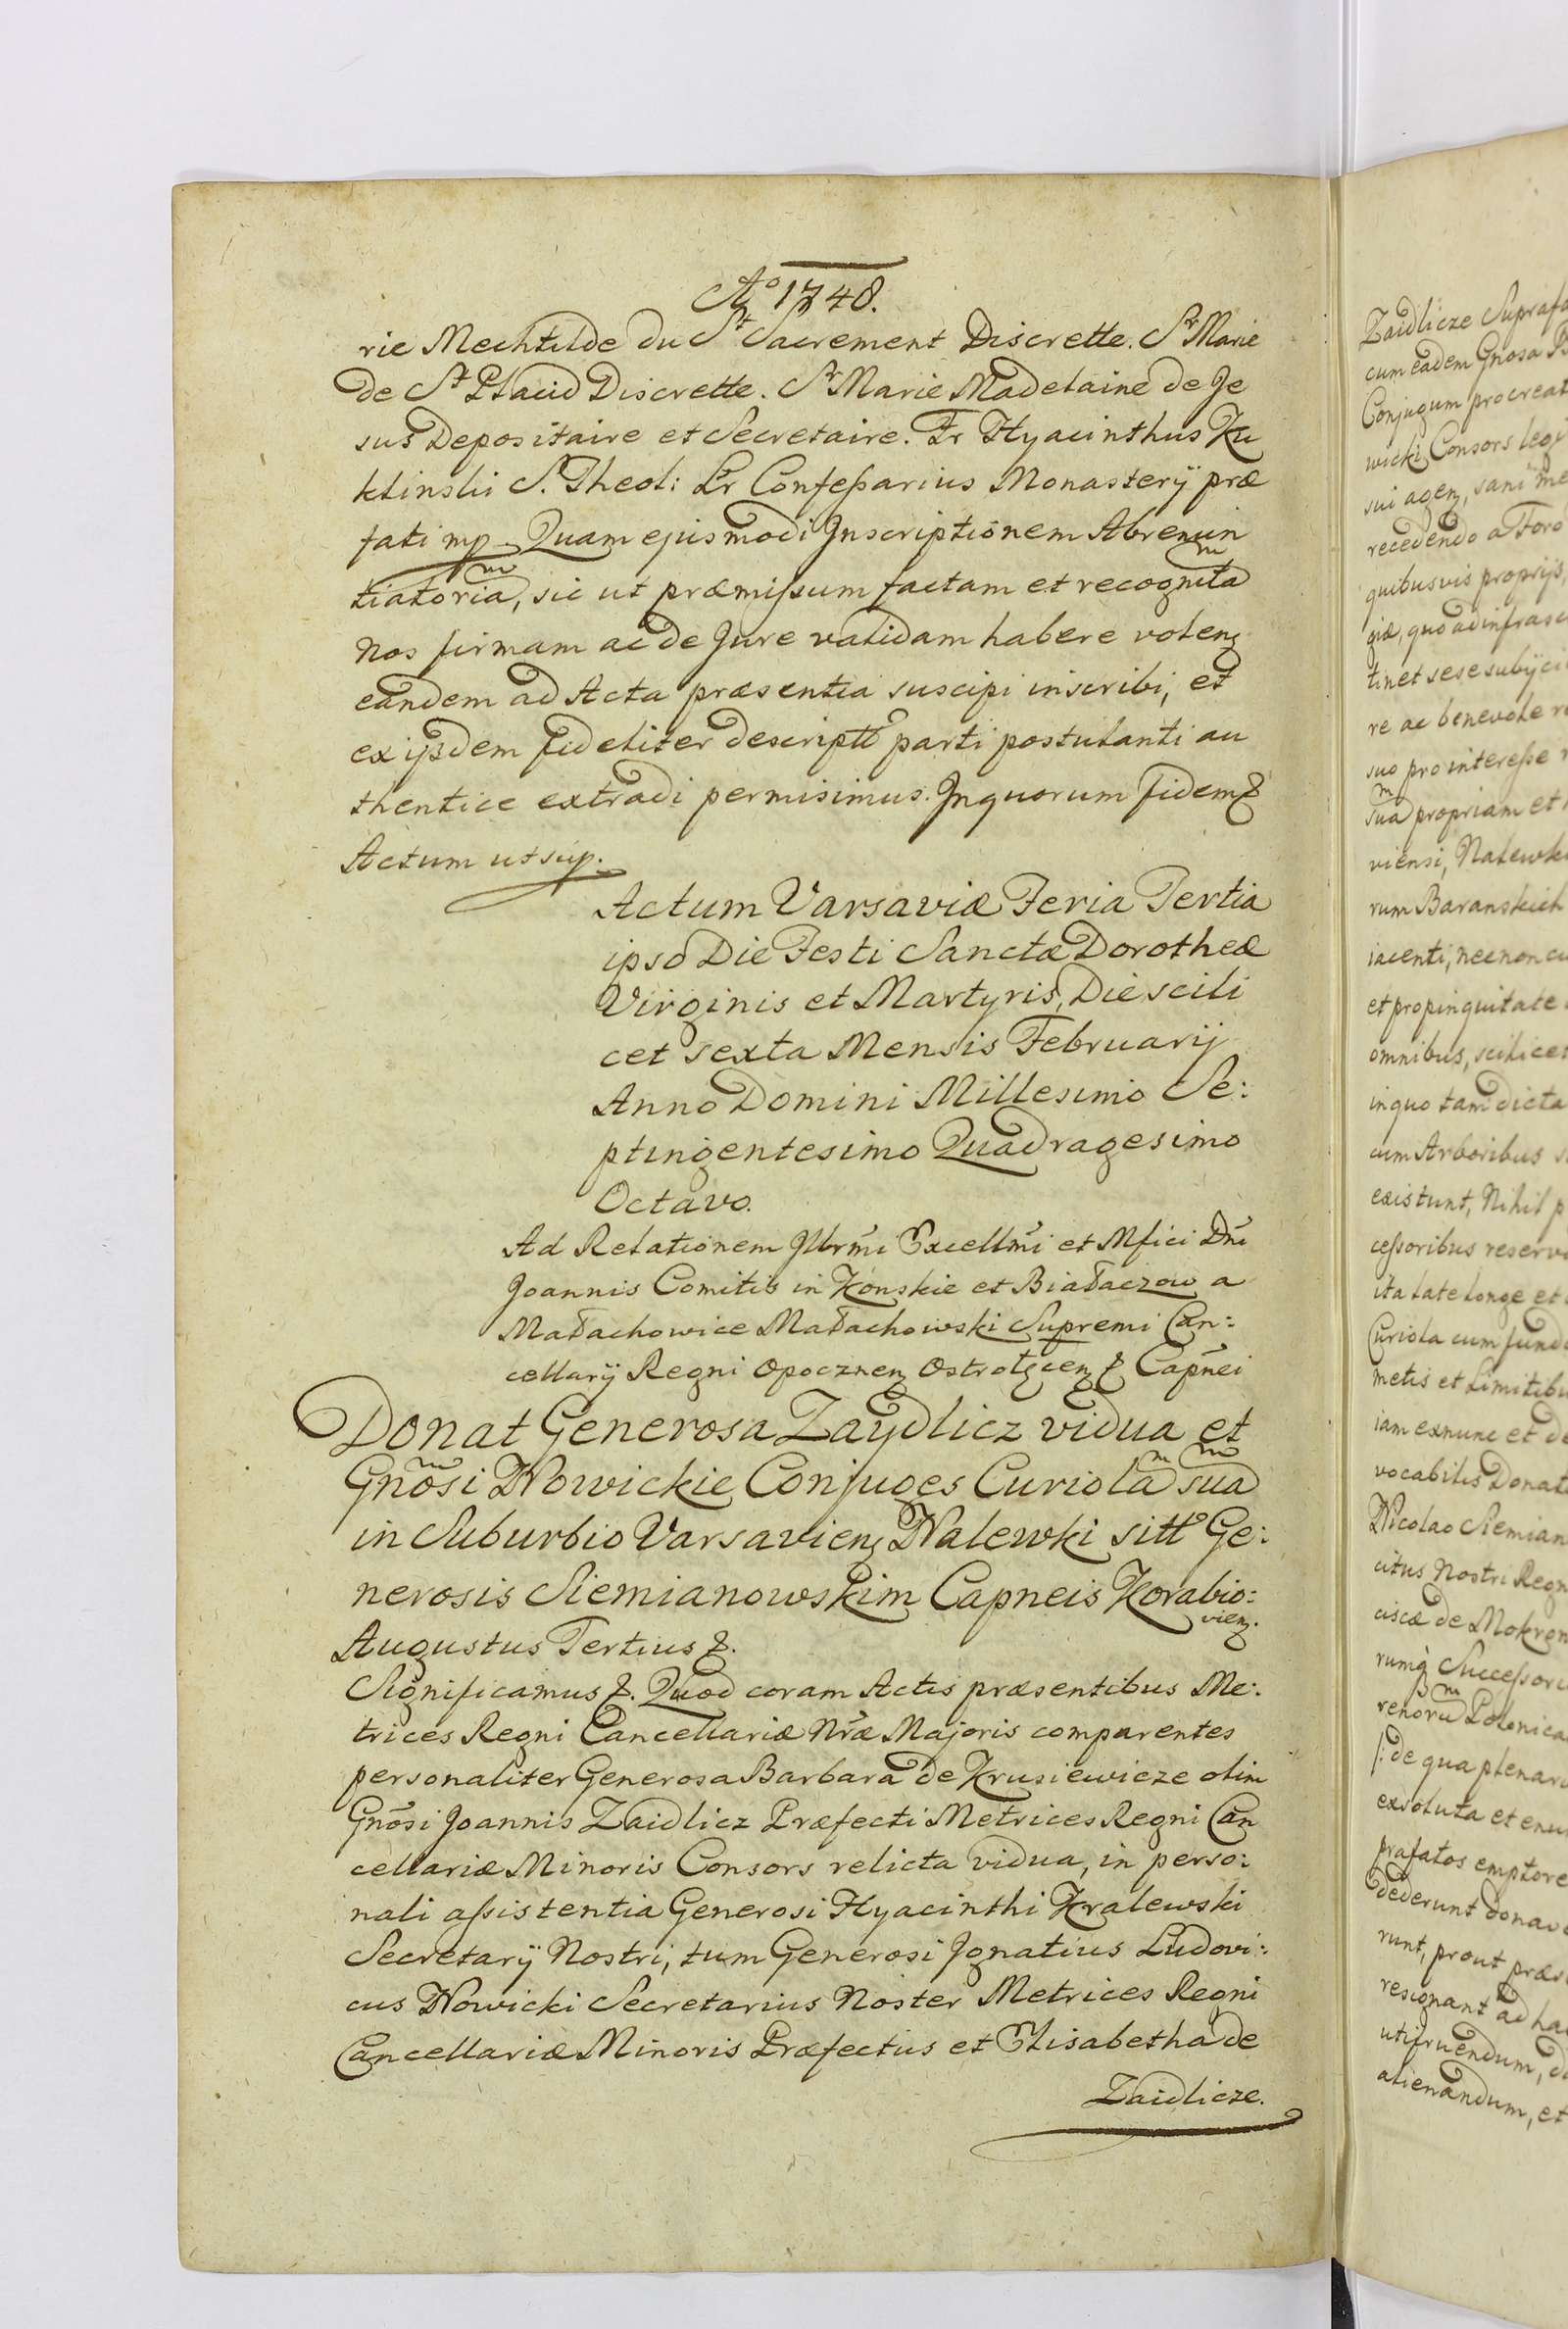 Aº 1748.
rie Mechtilde du St Sacrement Discrette. Sr Marie
de St Placid Discrette. Sr Marie Madelaine de Je
sus Depositaire et Secretaire. Fr Hyacinthus Ku
klinski S. Theol: Lr Confeſsarius Monasterÿ præ
fati mp. Quam ejusmodi Inscriptionem Abrenun
tiatoriam, sic ut præmiſsum factam et recognitam
Nos firmam ac de Jure validam habere volenꝫ
eandem ad Acta præsentia suscipi inscribi, et
ex ijsdem fideliter descriptº parti postulanti au
thentice extradi permisimus. In quorum fidem ꝛ
Actum ut sup.
Actum Varsaviæ Feria Tertia
ipso Die Festi Sanctæ Dorotheæ
Virginis et Martyris, Die scili
cet sexta Mensis Februarÿ
Anno Domini Millesimo Se:
ptingentesimo Quadragesimo
Octavo.
Ad Relationem Illrm̃i Excellm̃i et Mfici Dñi
Joannis Comitis in Konskie et Białaczow a
Małachowice Małachowski Supremi Can:
cellarÿ Regni Opocznenꝫ Ostrolęcenꝫ ꝛ Capñei
Donat Generosa Zaydlicz vidua et
Gnõsi Nowickie Conjuges Curiolam suam
in Suburbio Varsavienꝫ Nalewki sittº Ge:
nerosis Siemianowskim Capneis Korabio:
vienꝫ.
Augustus Tertius ꝛ.
Significamus ꝛ. Quod coram Actis præsentibus Me:
trices Regni Cancellariæ Nr̃æ Majoris comparentes
personaliter Generosa Barbara de Krusiewicze olim
Gnõsi Joannis Zaidlicz Præfecti Metrices Regni Can
cellariæ Minoris Consors relicta vidua, in perso:
nali aſsistentia Generosi Hyacinthi Kralewski
Secretarÿ Nostri, tum Generosi Ignatius Ludovi:
cus Nowicki Secretarius Noster Metrices Regni
Cancellariæ Minoris Præfectus et Elisabetha de
Zaidlicze.
Zaidlicze
cum eadem Gnosa
Conjugum procreat
wicki Consors legi
sui agenꝫ, sani me
recedendo a Foro
quibusvis proprijs,
giæ, quo ad infras
tinet sese subÿci
re ac benevole
suo pro intereſse
suam propriam et
viensi, Nalewki
rum Baranskich
iacenti, necnon cu
et propinquitate
omnibus, scilicet
in quo tam dicta
cum Arboribus
existunt, Nihil p
ceſsoribus reserv
ita late longe et
Curiola cum fund
metis et Limitibu
iam exnunc et de
vocabilis Donat
Nicolao Siemian
citus Nostri Regn
ciscæ de Mokron
Succeſsori
Polonica
/: de qua plenari
exoluta et
præfatos emptore
dederunt donav
runt, prout præs
resignant ad ha
utifruendum, d
alienandum, et